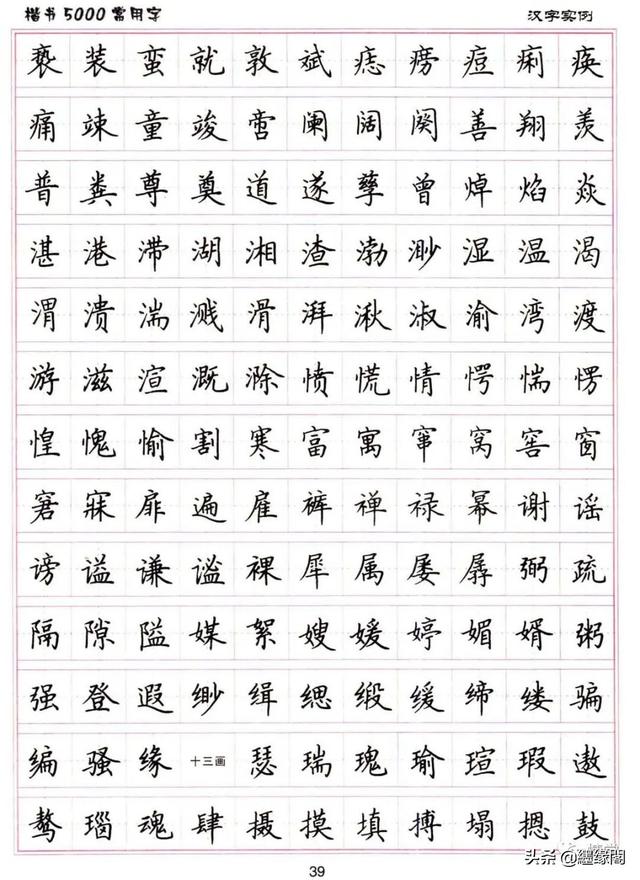 楷书5000常用字 汉字实例
亵 装 蛮 就 敦 斌 痣 痨 痘 痢 痪
痛 竦 童 竣 啻 阑 阔 阕 善 翔 羡
普 粪 尊 奠 道 遂 孳 曾 焯 焰 焱
湛 港 滞 湖 湘 渣 渤 渺 湿 温 渴
渭 溃 湍 溅 滑 湃 湫 淑 渝 湾 渡
游 滋 渲 溉 滁 愤 慌 情 愕 惴 愣
惶 愧 愉 割 寒 富 寓 窜 窝 窖 窗
窘 寐 扉 遍 雇 裤 禅 禄 幂 谢 谣
谤 谥 谦 谧 裸 犀 属 屡 孱 弼 疏
隔 隙 隘 媒 絮 嫂 媛 婷 媚 婿 粥
强 登 遐 缈 缉 缌 缎 缓 缔 缕 骗
编 骚 缘 十三画 瑟 瑞 瑰 瑜 瑄 瑕 遨
骜 瑙 魂 肆 摄 摸 填 搏 塌 摁 鼓
头条@繾缘閣
39